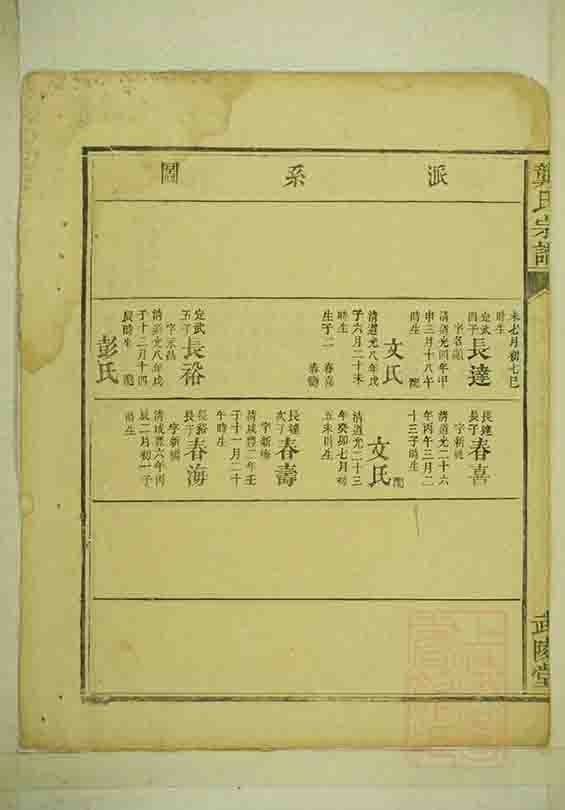 龔氏宗譜
武陵堂
派系圖
未七月初七巳
時生
定武
四子
長達
清道光四年甲
申三月十八午
時生
配
文氏
清道光八年戊
子六月二十未
時生
生子二 春喜
春壽
定武
五子
長裕
字永昌
清道光八年戊
子十二月十四
辰時生
配
彭氏
長達
長子
春喜
清道光二十六
年丙午三月二
十三子時生
配
文氏
清道光二十三
年癸卯七月初
五未時生
長達
次子
春壽
清咸豐二年壬
子十一月二十
午時生
長裕
長子
春海
清咸豐六年丙
辰二月初一子
時生